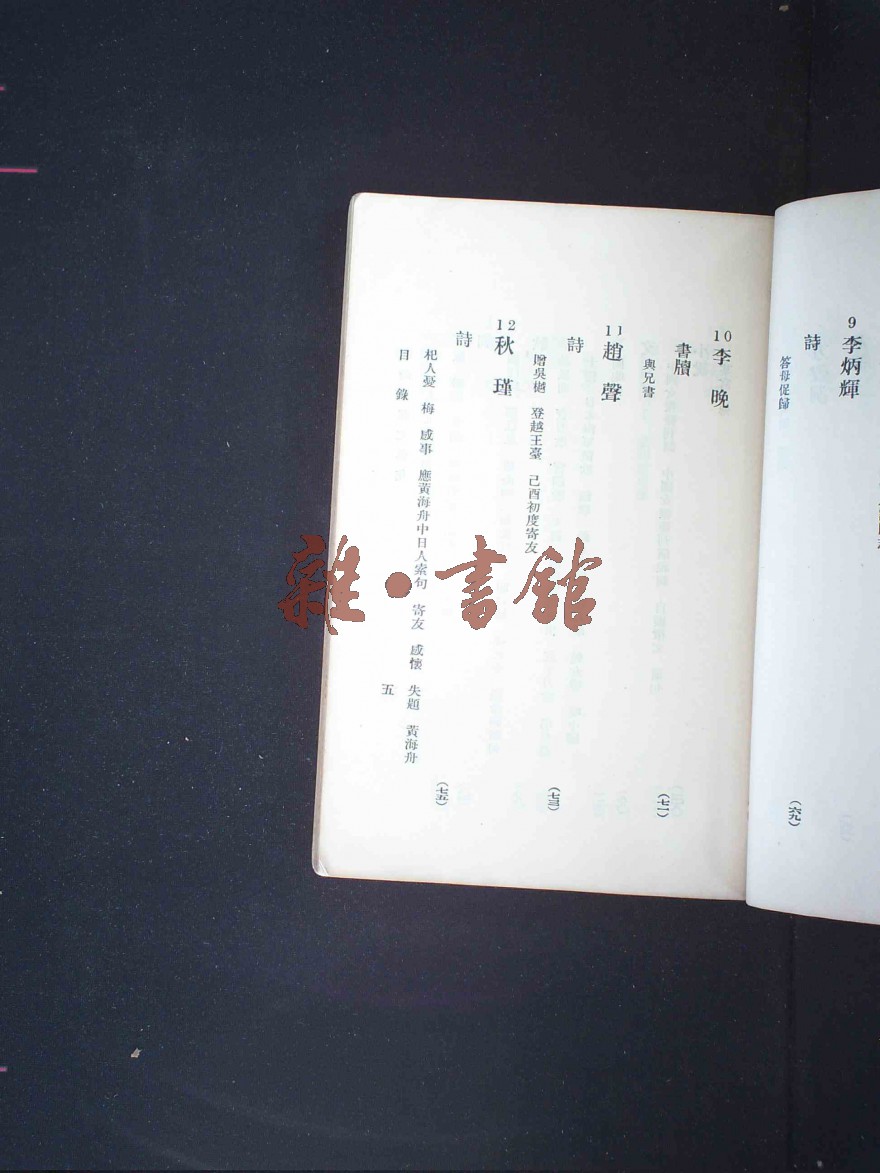 9 李炳輝
詩
答母促歸
(六九)
10 李晚
書牘
與兄書
(七一)
11 趙聲
詩
贈吳樾 登越王臺 己酉初度寄友
(七三)
12 秋瑾
詩
杞人憂 梅 感事 應黃海舟中日人索句 寄友 感懷 失題 黃海舟
(七五)
目錄
五
雜·書館